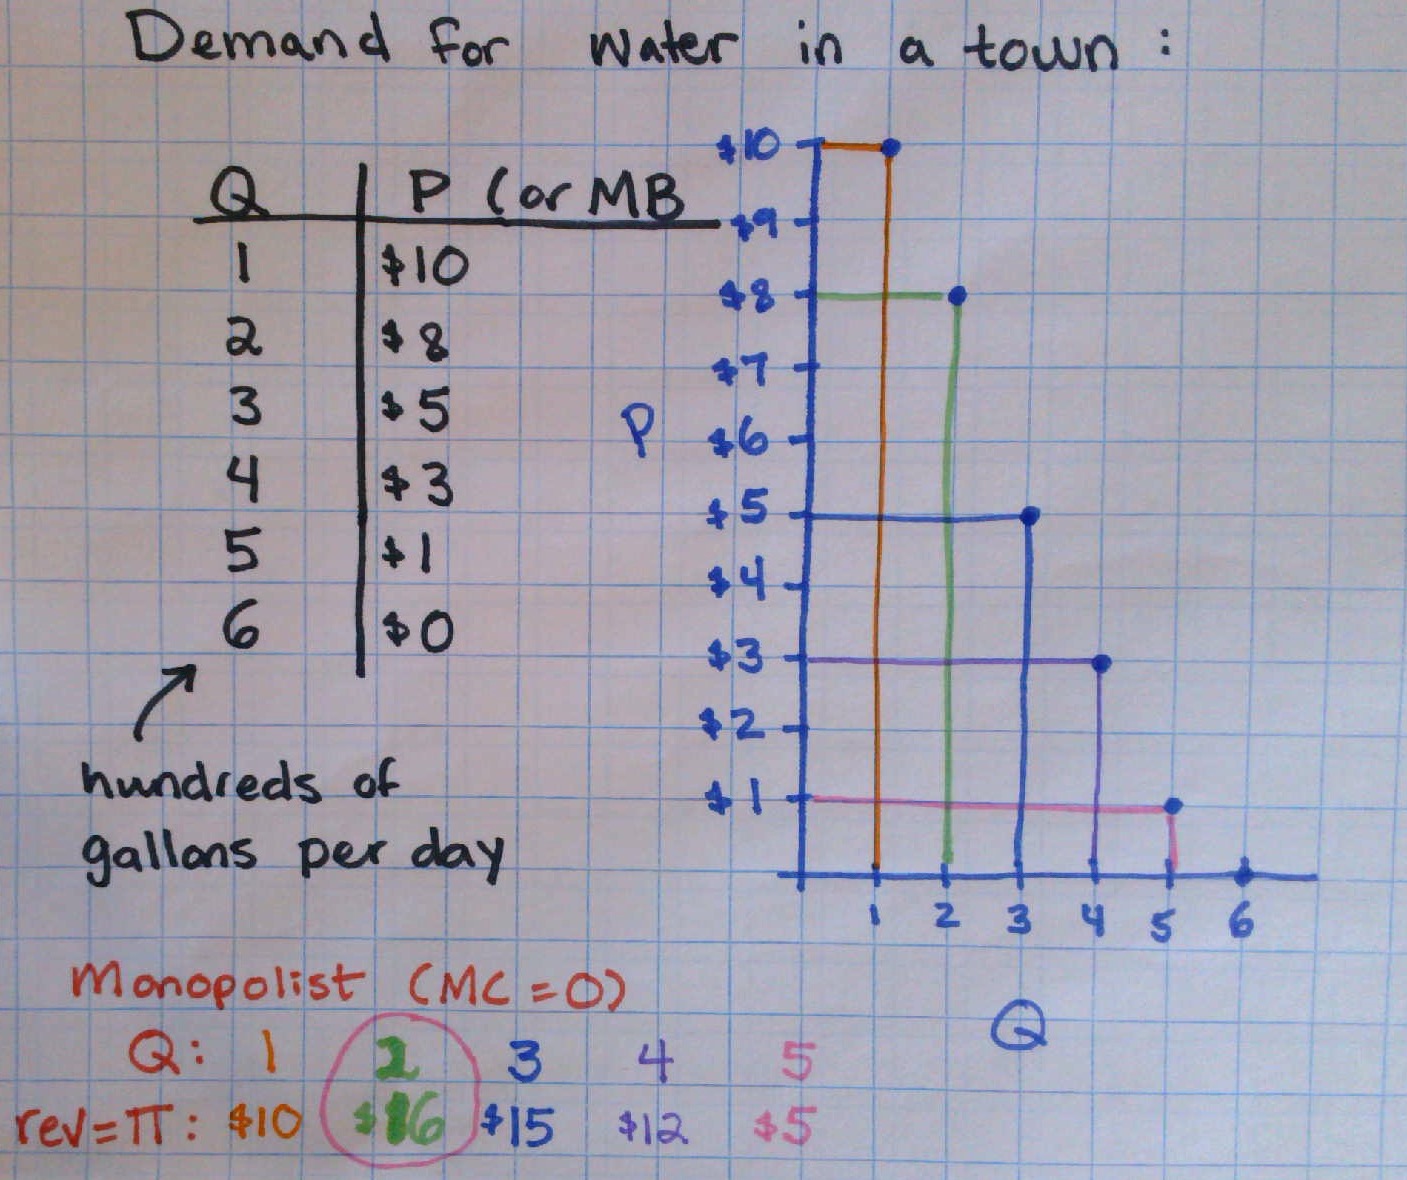 Demand for water in a town:
Q P (or MB
1 $10
2 $8
3 $5
4 $3
5 $1
6 $0
hundreds of
gallons per day
$10
$9
$8
$7
$6
$5
$4
$3
$2
$1
P
1 2 3 4 5 6
Q
Monopolist (MC=0)
Q: 1 2 3 4 5
rev=π: $10 $16 $15 $12 $5